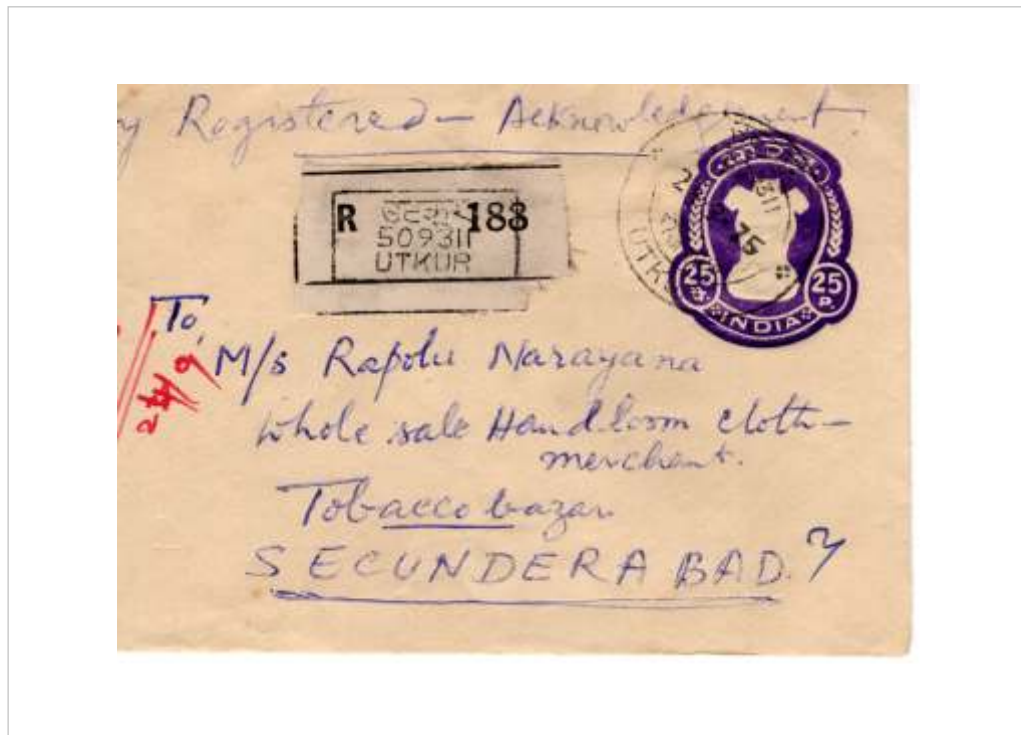 Registered – Acknowledgement
R 183
509311
UTKUR
25 25
P.
INDIA
75
To,
M/s Rapolu Narayana
Whole sale Handloom cloth –
merchant.
Tobacco bazar
SECUNDERABAD.